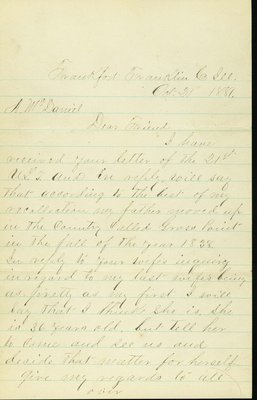 Frankfort Franklin Co Ill.
Oct 21 1886
A. McDaniel
Dear Friend
I have
received your letter of the 21st
and in reply will say
that according to the best of my
recollection my father moved up
in the Country Called
in the fall of the year 1838
In reply to your wifes inquiry
in regard to my last wife being
as pretty as my first I will
say that I think she is. she
is 36 years old. but tell her
to Come and see us and
decide that matter for herself
Give my regards to all
over